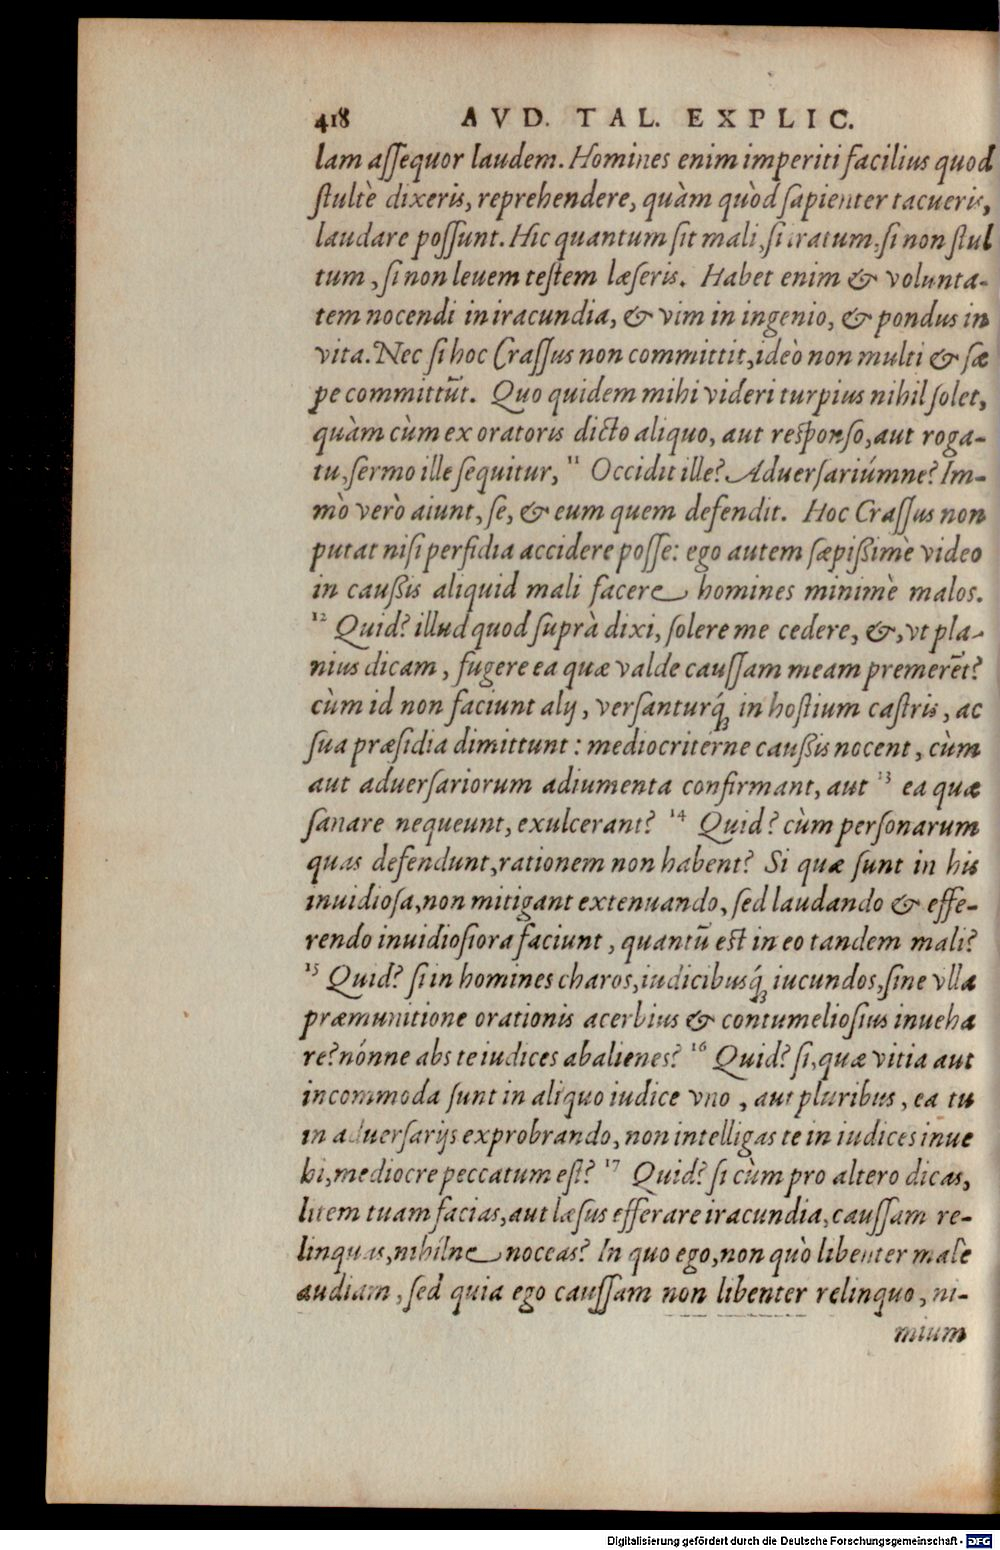 418 AVD. TAL. EXPLIC.
lam aſſequor laudem. Homines enim imperiti facilius quod
ſtultè dixeris, reprehendere, quàm quòd ſapienter tacueris,
laudare poſſunt. Hic quantum ſit mali, ſi iratum, ſi non ſtul
tum, ſi non leuem teſtem læſeris. Habet enim & volunta-
tem nocendi in iracundia, & vim in ingenio, & pondus in
vita. Nec ſi hoc Craſſus non committit, ideò non multi & ſæ
pe committūt. Quo quidem mihi videri turpius nihil ſolet,
quàm cùm ex oratoris dicto aliquo, aut reſponſo, aut roga-
tu, ſermo ille ſequitur, 11 Occidit ille? Aduerſariúmne? Im-
mò verò aiunt, ſe, & eum quem defendit. Hoc Craſſus non
putat niſi perfidia accidere poſſe: ego autem ſæpißimè video
in caußis aliquid mali facere homines minimè malos.
12 Quid? illud quod ſuprà dixi, ſolere me cedere, &, vt pla-
nius dicam, fugere ea quæ valde cauſſam meam premerēt?
cùm id non faciunt alij, verſanturq́ꝫ in hoſtium caſtris, ac
ſua præſidia dimittunt: mediocritérne caußis nocent, cùm
aut aduerſariorum adiumenta confirmant, aut 13 ea quæ
ſanare nequeunt, exulcerant? 14 Quid? cùm perſonarum
quas defendunt, rationem non habent? Si quæ ſunt in his
inuidioſa, non mitigant extenuando, ſed laudando & effe-
rendo inuidioſiora faciunt, quantū eſt in eo tandem mali?
15 Quid? ſi in homines charos, iudicibusq́ꝫ iucundos, ſine vlla
præmunitione orationis acerbius & contumelioſius inueha
re? nónne abs te iudices abalienes? 16 Quid? ſi, quæ vitia aut
incommoda ſunt in aliquo iudice vno, aut pluribus, ea tu
in aduerſarijs exprobrando, non intelligas te in iudices inue
hi, mediocre peccatum eſt? 17 Quid? ſi cùm pro altero dicas,
litem tuam facias, aut læſus efferare iracundia, cauſſam re-
linquas, nihílne noceas? In quo ego, non quò libenter male
audiam, ſed quia ego cauſſam non libenter relinquo, ni-
mium
Digitalisierung gefördert durch die Deutsche Forschungsgemeinschaft - DFG